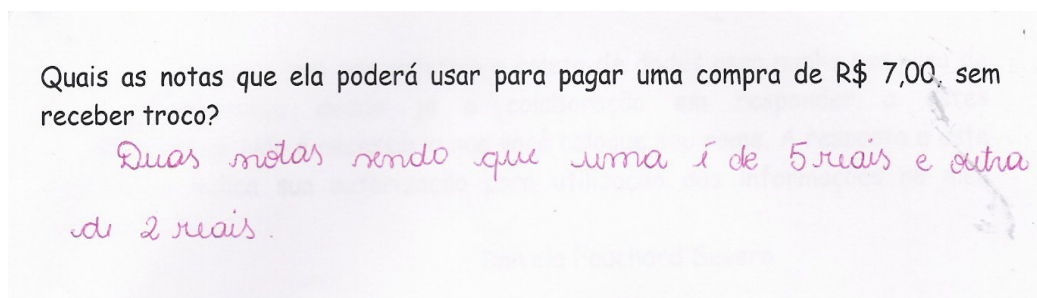 Quais as notas que ela poderá usar para pagar uma compra de R$ 7,00, sem
receber troco?
Duas notas sendo que uma é de 5 reais e outra
de 2 reais.